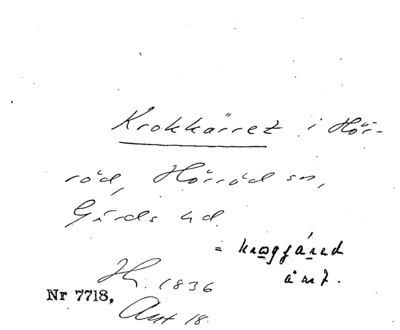 Krokkärret i Hör-
röd, Hörröd sn,
Gärds hd.
= krogjáred
ä mf.
Hr. 1836
Nr 7718,
Akt 18.